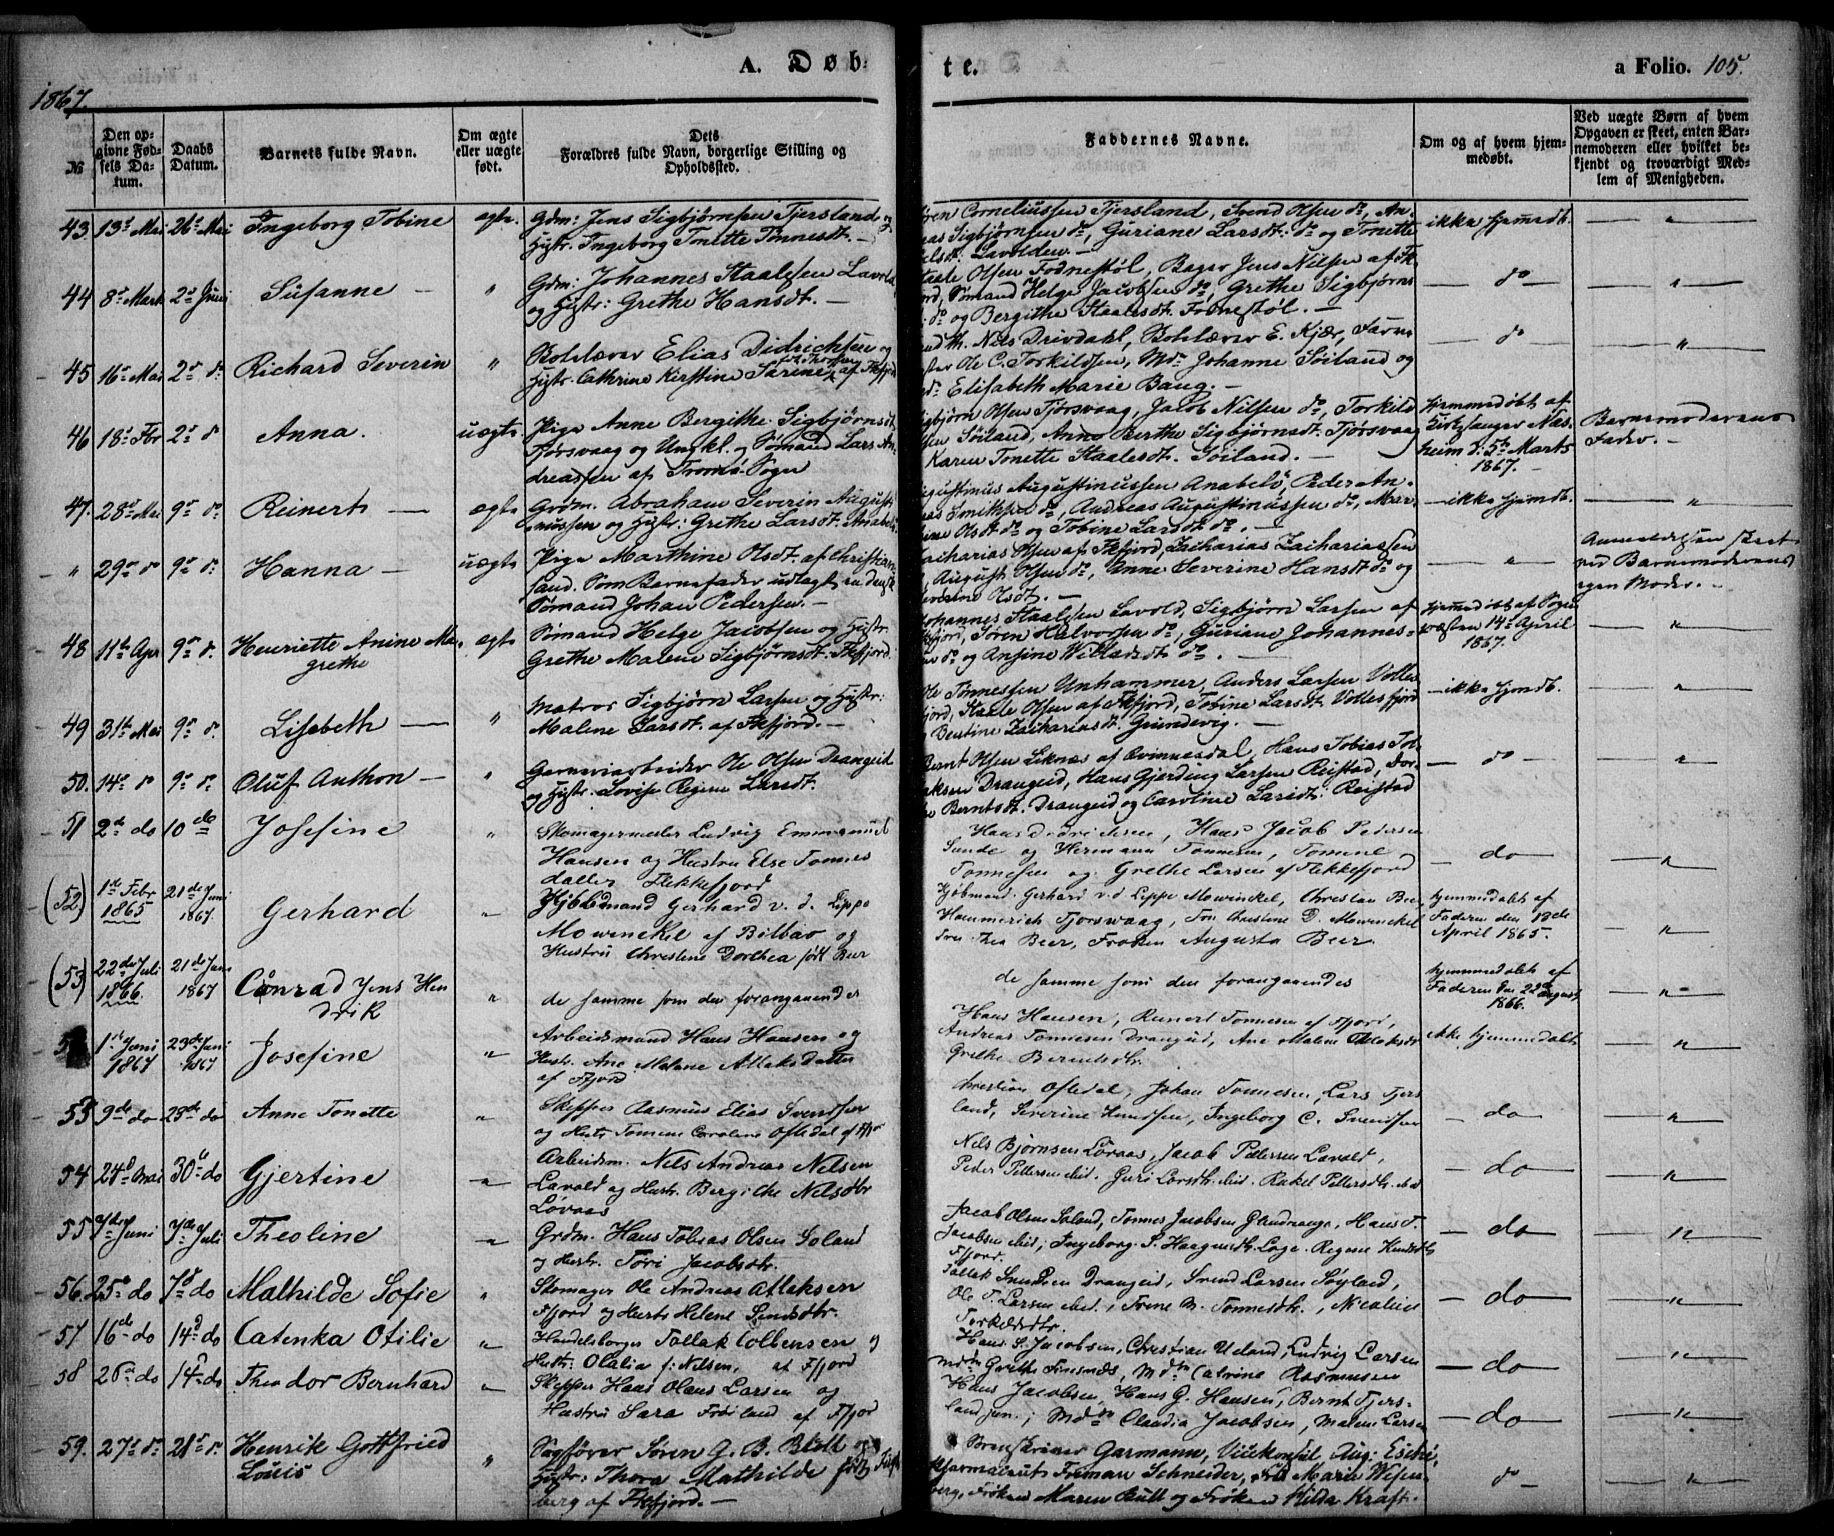 A. Døb-
te.
a Folio. 105.
1867.
№
Den op-
givne Fød-
sels Da-
tum.
Daabs
Datum.
Barnets fulde Navn.
Om ægte
eller uægte
født.
Dets
Forældres fulde Navn, borgerlige Stilling og
Opholdssted.
Faddernes Navne.
Om og af hvem hjem-
medøbt.
Ved uægte Børn af hvem
Opgaven er skeet, enten Bar-
nemoderen eller hvilket be-
kjendt og troværdigt Med-
lem af Menigheden.
43 13de Mai 26de Mai Ingeborg Tobine ægte. Gdm: Jens Sigbjørnsen Tjersland og
Hustr: Ingeborg Tonette Tønnesdt. —
Corneliussen Tjersland, Svend Olsen do, An-
Sigbjørnsen do, Guriane Larsdt. do og Tonette
Lavolden. —
ikke hjemmedøbt. — " —
44 8de Marts 2den Juni Susanne — " Gdm: Johannes Staalesen Lavold
og Hustr: Grethe Hansdt. —
Olsen Fodnestøl, Bager Jens Nilsen af Fk-
Sømand Helge Jacobsen do, Grethe Sigbjørns-
do og Bergithe Staalesdt. Fodnestøl. —
— do — — " —
45 16de Mai 2den do Richard Severin " Elias Didrichsen og
Hustr. Cathrine Kirstine Sørine af Fkfjord
Nils Drivdahl, E. Kjær,
Ole C. Torkildsen, Md. Johanne Søiland og
Elisabeth Marie Baug. —
— do — "
46 18de Fbr 2den do Anna. uægte Pige Anne Bergithe Sigbjørnsdt
Tjørsvaag og Ungkl. og Sømand Lars An-
dreassen af Tromø Sogn
Olsen Tjørsvaag, Jacob Nilsen do, Torkild
Søiland, Anne Berthe Sigbjørnsdt. Tjørsvaag
Karen Tonette Staalesdt. Søiland. —
hjemmedøbt af
Kirkesanger Næs-
heim d. 5te Marts
1867. —
Barnemoderens
Fader. —
47. 28de Mai 9de do Reinert — ægte Grdm. Abraham Severin August-
inussen og Hustr: Grethe Larsdt. Anabelø
Augustinussen Anabelø, Peder An-
Smithsen do, Andreas Augustinussen do, Mar-
Olsdt do og Tobine Larsdt do. —
— ikke hjemdbt. — " —
" 29de do 9de do Hanna — uægte Pige Marthine Olsdt. af Christian-
sand. Som Barnefader udlagt
Sømand Johan Pedersen. —
Zacharias Olsen af Fkfjord, Zacharias Zachariassen
August Olsen do, Anne Severine Hansdt do og
Severine Olsdt. —
" Anmeldelsen skeet
ved Barnemoderens
egen Moder. —
48 11te Apr 9de do Henriette Anine Mar-
grethe
ægte Sømand Helge Jacobsen og Hustr.
Grethe Malene Sigbjørnsdt. Fkfjord.
Johannes Staalesen Lavold, Sigbjørn Larsen af
Fkfjord, Søren Halvorsen do, Guriane Johannes-
do og Ansine Willadsdt do. —
hjemmedøbt af Sogne-
præsten 14de April
1867.
— " —
49 31te Mai 9de do Lisebeth — " Matros Sigbjørn Larsen og Hustr:
Malene Larsdt. af Fkfjord. —
Ole Tønnessen Unhammer, Anders Larsen Volles-
fjord, Staale Olsen af Fkfjord, Tobine Larsdt. Vollesfjord
Bentine Zachariasdt. Grundevig. —
— ikke hjemdb. — " —
50. 14de do 9de do Oluf Anthon — " Garveriarbeider Ole Olsen Drangeid
og Hustr. Lovise Regine Larsdt.
Bernt Olsen Liknæs af Qvinnesdal, Hans Tobias Tol-
laksen Drangeid, Hans Gjerding Larsen Reistad,
Berntsdt. Drangeid og Caroline Larsdt. Reistad
— do — "
51 2de do 10de Josefine " Skomagermester Ludvig Emmanuel
Hansen og Hustru Else Tonnes
datter Flekkefjord
Hans Jacob Pedersen
Sunde og Hermann Tonnesen, Tomine
Tonnesen og Grethe Larsen af Flekkefjord
— do — — " —
(52) 1de Febr
1865
21de Juni
1867
Gerhard " Kjøbmand Gerhard v. d. Lippe
Mowinckel af Bilbao og
Hustru Christine Dorthea født Beer
Kjøbmand Gerhard v d Lippe Mowinkel, Christian Beer
Hammerich Tjorsvaag, Fru Christine D. Mowinckel
Fru Thea Beer, Frøken Augusta Beer
hjemmedøbt af
Faderen den 18de
April 1865.
— " —
(53) 22de Juli
1866.
21de Juni
1867
Conrad Jens Hen
drik
" de samme som den foregaaendes
de samme som den foregaaendes
hjemmedøbt af
Faderen den 22de August
1866.
— " —
1de Juni
1867
23de Juni
1867
Josefine " Arbeidsmand Hans Hansen og
Hustr. Ane Malene Atlaksdatter
af Ffjord
Hans Hansen, Reinert Tonnesen af Ffjord,
Andreas Tonnesen Drangeid, Ane Malene Atlaksdtr
Grethe Berntsdtr.
ikke hjemmedøbt — " —
53 9de do 23de do Anne Tonette " Skipper Aasmus Elias Svendsen
og Hustr Tomine Caroline Oftedal af Ffjor
Christian Oftedal, Johan Tonnesen, Lars Tjers
land, Severine Knudsen, Ingeborg C. Svendsen
— do — "
54 24de Mai 30te do Gjertine " Arbeidsm. Nels Andreas Nelsen
Lavold og Hustr. Bergithe Nelsdtr
Løvaas
Nels Bjørnsen Løvaas, Jacob Pettersen Lavold,
Peder Pettersen ibid. Guri Larsdtr. ibid. Rakel Pettersdtr. ibid
— do — — " —
55 7de Juni 7de Juli Theoline " Grdm. Hans Tobias Olsen Soland
og Hustr. Tori Jacobsdtr.
Jacob Olsen Soland, Tonnes Jacobsen Glendrange, Hans T.
Jacobsen ibid, Ingeborg S. Haagensdtr. Loge. Regine Knudsdtr
Ffjord.
— do — "
56. 25de do 7de do Mathilde Sofie " Skomager Ole Andreas Atlaksen
Ffjord og Hustr Helene Svendsdtr.
Tallak Svendsen Drangeid, Svend Larsen Søyland,
Ole T. Larsen ibid., Trine M. Tonnesdtr., Nicoline
Torkildsdtr.
— do — "
57 16de do 14de do Catenka Otilie " Handelsborger Tallak Colbensen og
Hustr: Olalia f: Nelsen, af Ffjord
Hans S. Jacobsen, Christian Ueland, Ludvig Larsen
Mdm Grethe Finsnæs, Mdm Catrine Rasmussen
— do — "
58 26de do 14de do Theodor Bernhard " Skipper Hans Olaus Larsen og
Hustru Sara Frøiland af Ffjor
Hans Jacobsen, Hans G. Hansen, Bernt Tjers-
land jun.; Mdm Claudia Jacobsen, Malene Larsen
— do — "
59. 27de do 21de do Henrik Gottfried
Louis
" Sagfører Søren G. B. Bull og
Hustr: Thora Mathilde født
berg af Fkfjord. —
Sorenskriver Garmann, Vicekonsul Aug. Eschi
Pharmaceut Firman Schneider, Marie Wesen-
berg, Frøken Maren Bull og Frøken Hilda Kraft.
do — "